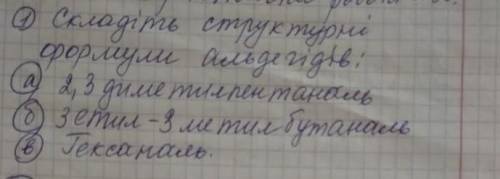 ① Складіть структурні
формули альдегідів:
ⓐ 2,3 диметилпентаналь
ⓑ 3 етил-3 метил бутаналь
ⓑ Гексаналь.